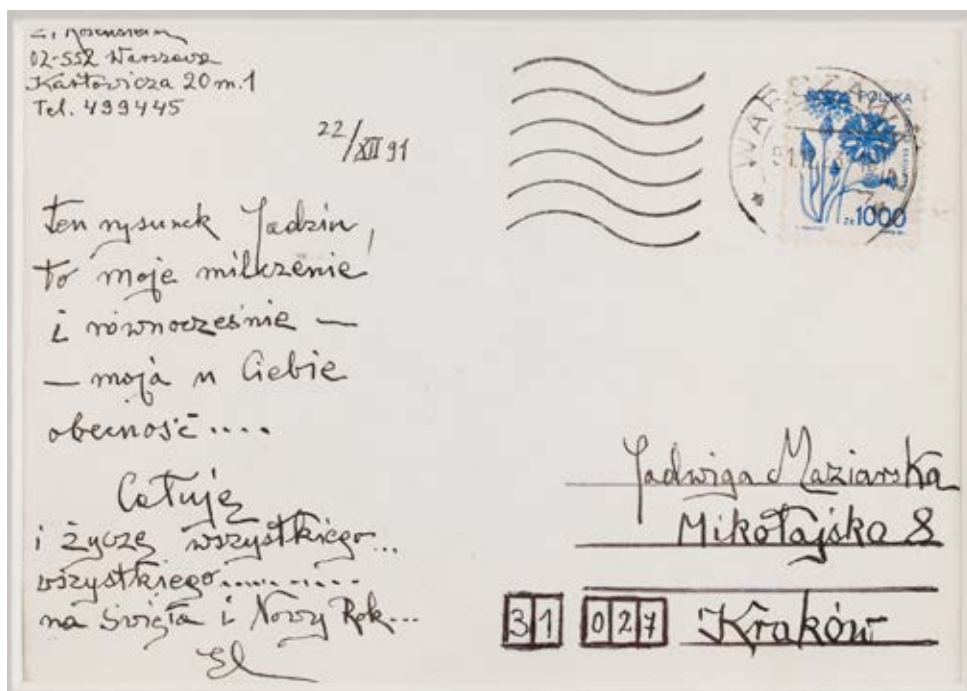 Rosenstein
02-552 Warszawa
Karłowicza 20 m.1
Tel. 499445
22/XII 91
ten rysunek Jadziu,
to moje milczenie
i równocześnie —
— moja u Ciebie
obecność ....
Całuję
i życzę wszystkiego...
wszystkiego...........
na Święta i Nowy Rok...
POLSKA
ZŁ 1000
WARSZAWA
Jadwiga Maziarska
Mikołajska 8
31 027 Kraków